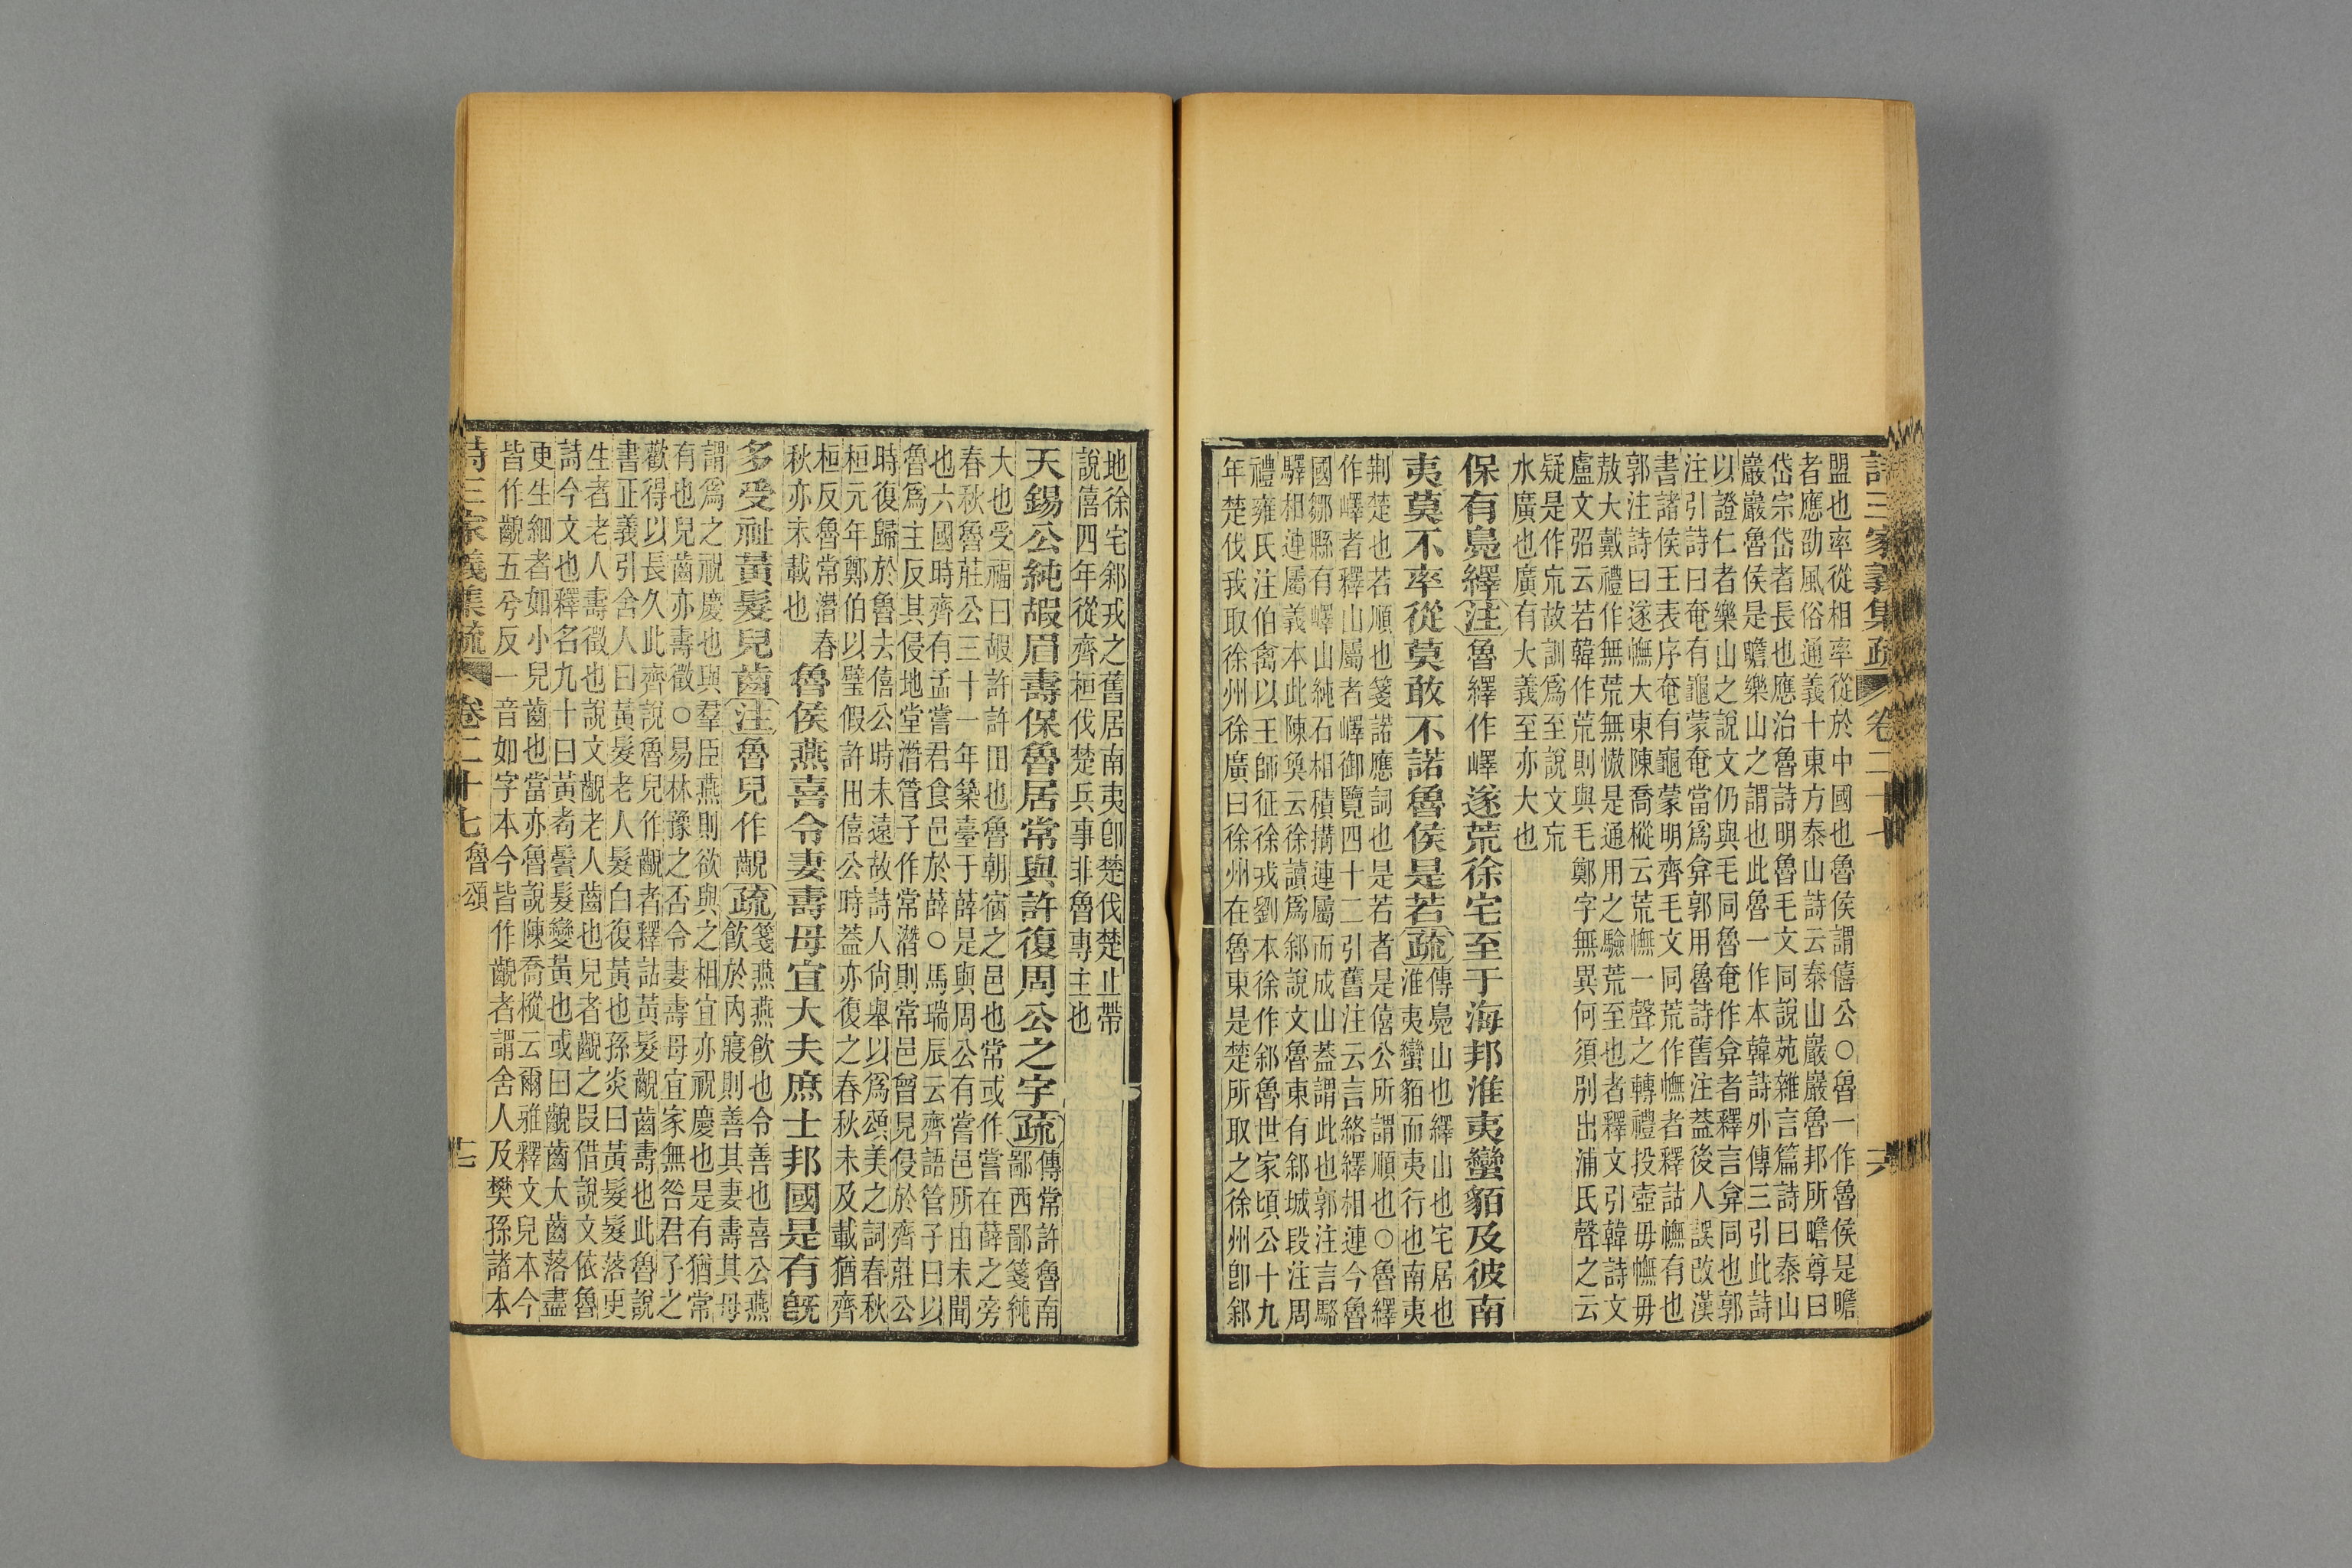 詩三家義集疏 卷二十七 六
盟也率從相率從於中國也魯侯謂僖公○魯一作魯侯是瞻
者應劭風俗通義十東方泰山詩云泰山巖巖魯邦所瞻尊曰
岱宗岱者長也應治魯詩明魯毛文同說苑雜言篇詩曰泰山
巖巖魯侯是瞻樂山之謂也此魯一作本韓詩外傳三引此詩
以證仁者樂山之說文仍與毛同魯奄作弇者釋言弇同也郭
注引詩曰奄有龜蒙奄當爲弇郭用魯詩舊注蓋後人誤改漢
書諸侯王表序奄有龜蒙明齊毛文同荒作幠者釋詁幠有也
郭注詩曰遂幠大東陳喬樅云荒幠一聲之轉禮投壺毋幠毋
敖大戴禮作無荒無慠是通用之驗荒至也者釋文引韓詩文
盧文弨云若韓作荒則與毛鄭字無異何須別出浦氏聲之云
疑是作巟故訓爲至說文巟
水廣也廣有大義至亦大也
保有鳧繹注魯繹作嶧遂荒徐宅至于海邦淮夷蠻貊及彼南
夷莫不率從莫敢不諾魯侯是若疏傳鳧山也繹山也宅居也
淮夷蠻貊而夷行也南夷
荆楚也若順也箋諾應詞也是若者是僖公所謂順也○魯繹
作嶧者釋山屬者嶧御覽四十二引舊注云言絡繹相連今魯
國鄒縣有嶧山純石相積搆連屬而成山蓋謂此也郭注言駱
驛相連屬義本此陳奐云徐讀爲䣄說文魯東有䣄城段注周
禮雍氏注伯禽以王師征徐戎劉本徐作䣄魯世家頃公十九
年楚伐我取徐州徐廣曰徐州在魯東是楚所取之徐州卽䣄
地徐宅䣄戎之舊居南夷卽楚伐楚止帶
說僖四年從齊桓伐楚兵事非魯專主也
天錫公純嘏眉壽保魯居常與許復周公之宇疏傳常許魯南
鄙西鄙箋純
大也受福曰嘏許許田也魯朝宿之邑也常或作嘗在薛之旁
春秋魯莊公三十一年築臺于薛是與周公有嘗邑所由未聞
也六國時齊有孟嘗君食邑於薛○馬瑞辰云齊語管子曰以
魯爲主反其侵地堂潛管子作常潛則常邑曾見侵於齊莊公
時復歸於魯去僖公時未遠故詩人尙舉以爲頌美之詞春秋
桓元年鄭伯以璧假許田僖公時蓋亦復之春秋未及載猶齊
桓反魯常潛春
秋亦未載也
魯侯燕喜令妻壽母宜大夫庶士邦國是有旣
多受祉黃髮兒齒注魯兒作齯疏箋燕燕飲也令善也喜公燕
飲於內寢則善其妻壽其母
謂爲之祝慶也與羣臣燕則欲與之相宜亦祝慶也是有猶常
有也兒齒亦壽徵○易林豫之否令妻壽母宜家無咎君子之
歡得以長久此齊說魯兒作齯者釋詁黃髮齯齒壽也此魯說
書正義引舍人曰黃髮老人髮白復黃也孫炎曰黃髮髮落更
生者老人壽徵也說文齯老人齒也兒者齯之叚借說文依魯
詩今文也釋名九十曰黃耇鬢髮變黃也或曰齯齒大齒落盡
更生細者如小兒齒也當亦魯說陳喬樅云爾雅釋文兒本今
皆作齯五兮反一音如字本今皆作齯者謂舍人及樊孫諸本
詩三家義集疏 卷二十七 魯頌